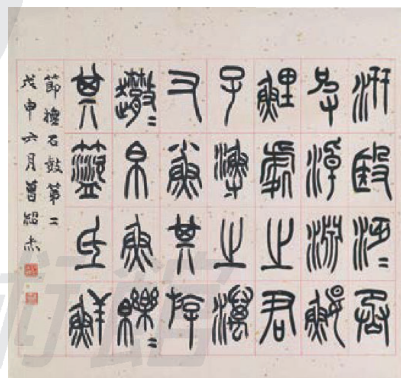 汧殹沔〻丞
皮淖淵鰋
鯉處之君
子漁之澫
又小魚其斿
𧽙〻帛魚皪〻
其盜氐鮮
節橅石鼓第二
戊申六月曾紹杰